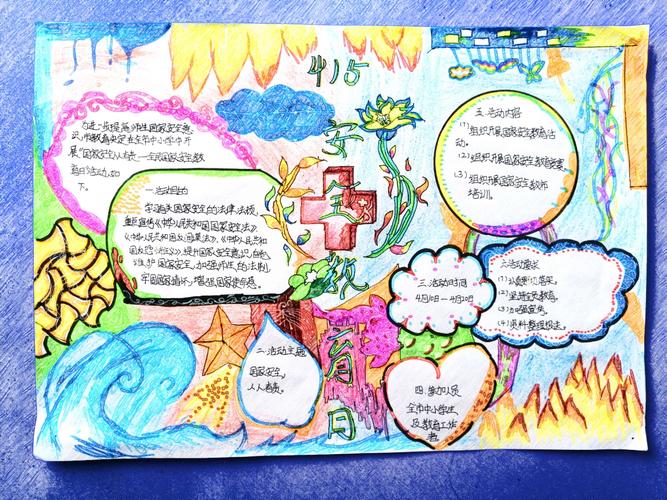 415
安
全
教
育
日
为进一步提高师生国家安全意
识,市教育决定在全市中小学中开
展"国家安全人人有责——全民国家安全教
育日"活动,如
下。
一.活动目的
学习有关国家安全的法律,法规,
重点宣传《中华人民共和国国家安全法》
《中华人民共和国反间谍法》、《中华人民共和
国反恐怖主义》,提升国家安全意识,自觉
维护国家安全,加强师生的法制
国家安全,
人人有责。
二.活动主题
三.活动时间
4月10日—4月20日
四.参加人员
全市中小学生
及教育工作
者
五.活动内容
(1)组织开展国家安全教育活
动。
(2)组织开展国家安全教育竞赛
(3)组织开展国家安全教师
培训。
六.活动要求
(2)坚持全员教育。
(3)加强宣传。
(4)资料整理报送。